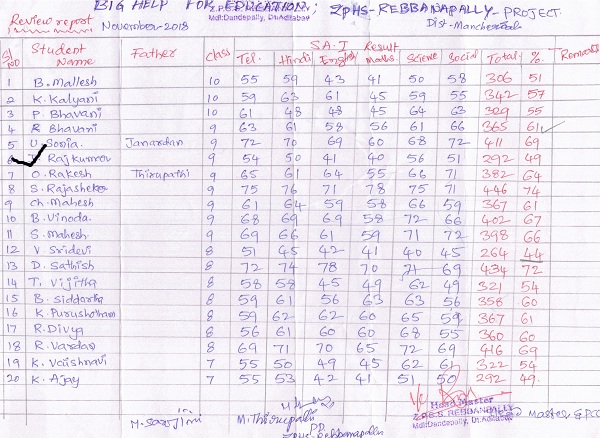 BIG HELP FOR EDUCATION; ZPHS-REBBANAPALLY-PROJECT
Review report Mdl:Dandepally, Dt.Adilabad Dist-Mancherial
November-2018
SA-I Result
Sl NO Student Name Father Class Tel. Hindi English Maths Science Social Total % Remarks
1 B. Mallesh 10 55 59 43 41 50 58 306 51
2 K. Kalyani 10 59 63 61 45 59 55 342 57
3 P. Bhavani 10 61 48 48 45 64 63 329 55
4 R Bhavani 9 63 61 58 56 61 66 365 61
5 U. Sonia Janardan 9 72 70 69 60 68 72 411 69
6 Rajkumar 9 54 50 41 40 56 51 292 49
7 O. Rakesh Thirupathi 9 65 61 64 55 66 71 382 64
8 S. Rajasheker 9 75 76 71 78 75 71 446 74
9 Ch. Mahesh 9 61 64 59 58 66 59 367 61
10 B. Vinoda 9 68 69 69 58 72 66 402 67
11 S. Mahesh 9 69 66 61 59 71 72 398 66
12 V. Sridevi 8 51 45 42 41 40 45 264 44
13 D. Sathish 8 72 74 78 70 71 69 434 72
14 T. Vijitha 8 58 58 45 49 62 49 321 54
15 B. Siddartha 8 59 61 56 63 63 56 358 60
16 K. Purushotham 8 59 62 62 60 65 59 367 61
17 R. Divya 8 56 61 60 60 68 55 360 60
18 R. Vardan 8 69 71 70 65 72 69 416 69
19 K. Vaishnavi 7 55 50 49 45 62 61 322 54
20 K. Ajay 7 55 53 42 41 51 50 292 49
M. Sarojini M. Thirupathi Head Master
ZPHS Rebbanapalli Z.P.H.S. REBBANAPALLY
Mdl:Dandepally, Dt.Adilabad